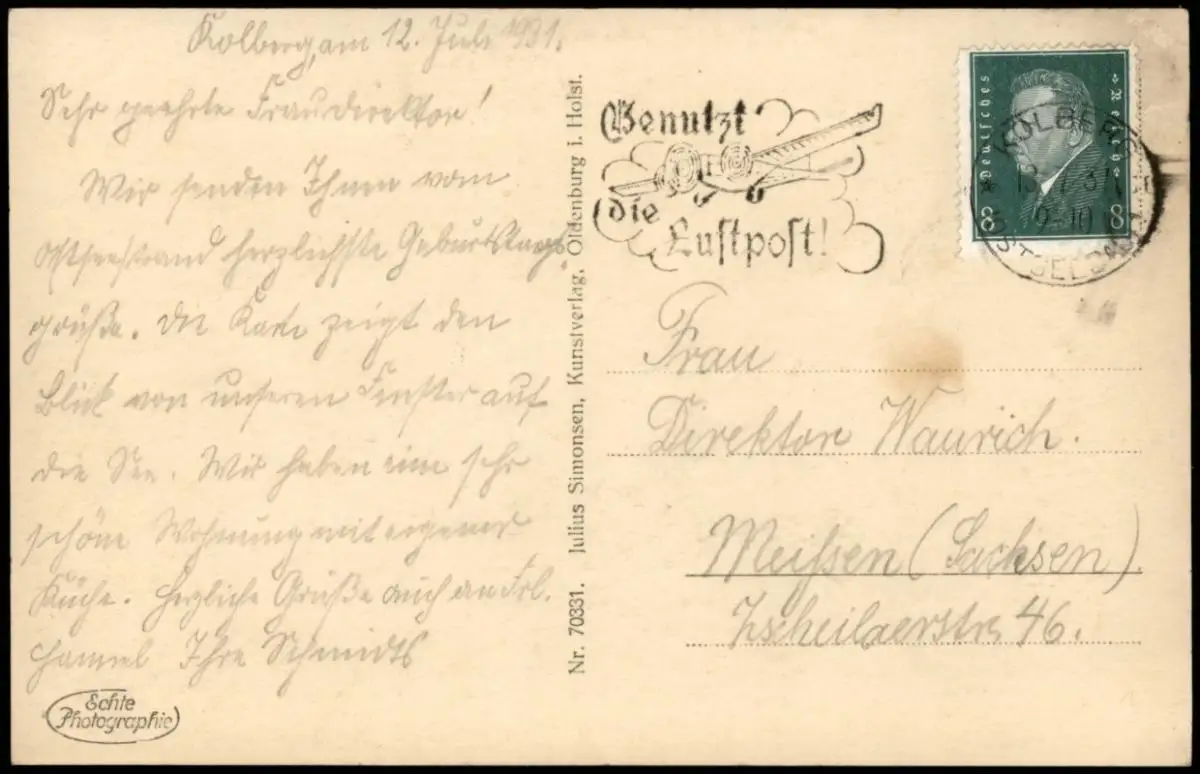 Kolberg, am 12. Juli 1931.
Sehr geehrte Frau Direktor!
Wir senden Ihnen vom
Ostseestrand herzlichste Geburtstags-
grüße. Die Karte zeigt den
Blick von unseren Fenster auf
die See. Wir haben eine sehr
schöne Wohnung mit eigener
Küche. Herzliche Grüße auch an Frl.
Ihre Schmidts
Echte
Photographie
Nr. 70331. Julius Simonsen, Kunstverlag, Oldenburg i. Holst.
Benutzt
die
Luftpost!
Deutsches Reich
8 8
KOLBERG
9-10
OSTSEEBAD
Frau
Direktor Waurich.
Meißen (Sachsen).
Zscheilaerstr. 46.